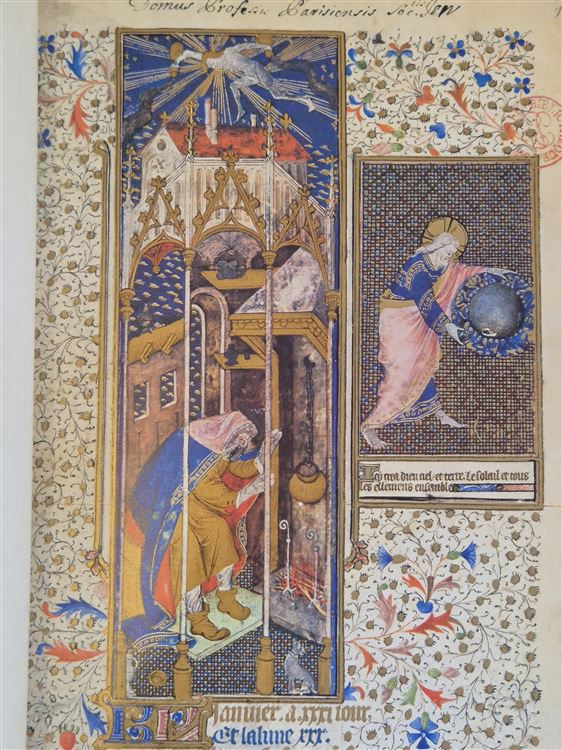 Domus Professæ Parisiensis Soc. Jesu
Icy crea dieu ciel et terre. Le soleil et tous
les ellemens ensemble
KL
Januier. a. xxxi iour.
Et la lune xxx.